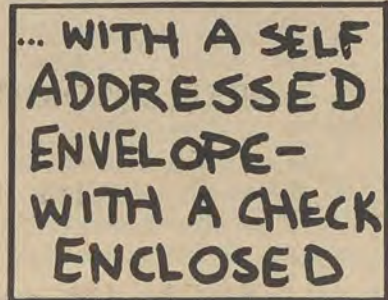 ... WITH A SELF
ADDRESSED
ENVELOPE-
WITH A CHECK
ENCLOSED